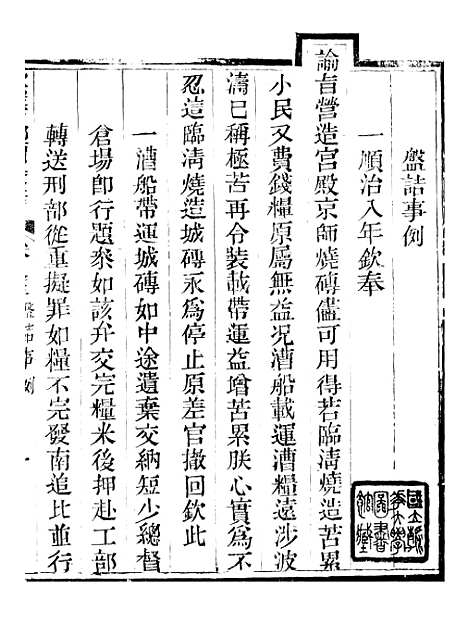 盤詰事例
一順治八年欽奉
諭旨營造宮殿京師燒磚儘可用得若臨清燒造苦累
小民又費錢糧原屬無益况漕船載運漕糧遠涉波
濤已稱極苦再令裝載帶運益增苦累朕心實爲不
忍這臨清燒造城磚永爲停止原差官撤回欽此
一漕船帶運城磚如中途遺棄交納短少總督
倉場卽行題叅如該弁交完糧米後押赴工部
轉送刑部從重擬罪如糧不完發南追比並行
盤詰事例